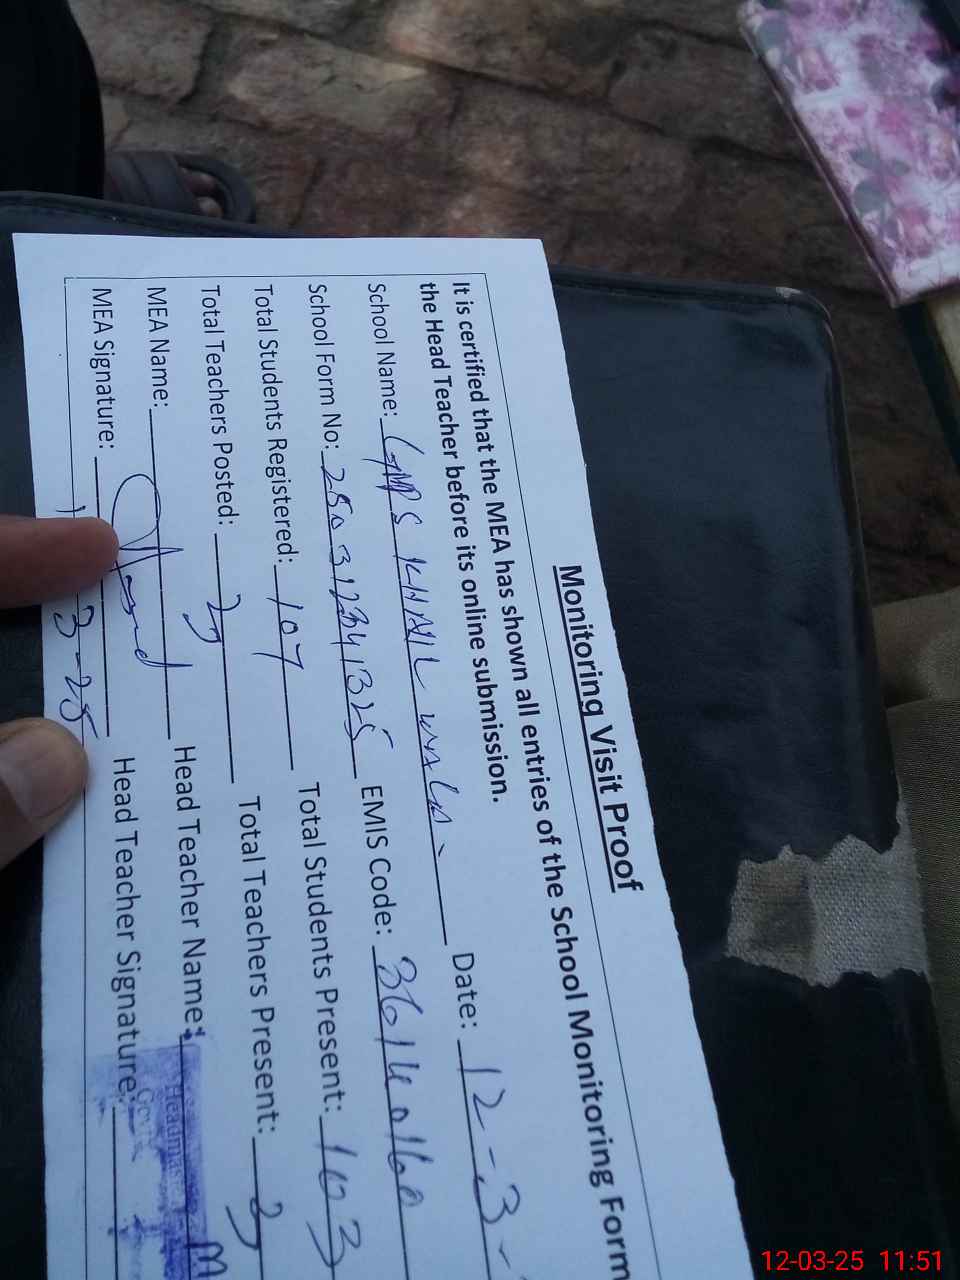 Monitoring Visit Proof
It is certified that the MEA has shown all entries of the School Monitoring Form
the Head Teacher before its online submission.
School Name: GMPS KHAIL WALA Date: 12-3-
School Form No: EMIS Code: 36140160
Total Students Registered: 107 Total Students Present: 103
Total Teachers Posted: 3 Total Teachers Present: 3
MEA Name: Head Teacher Name:
MEA Signature: Head Teacher Signature:
3-25
12-03-25 11:51